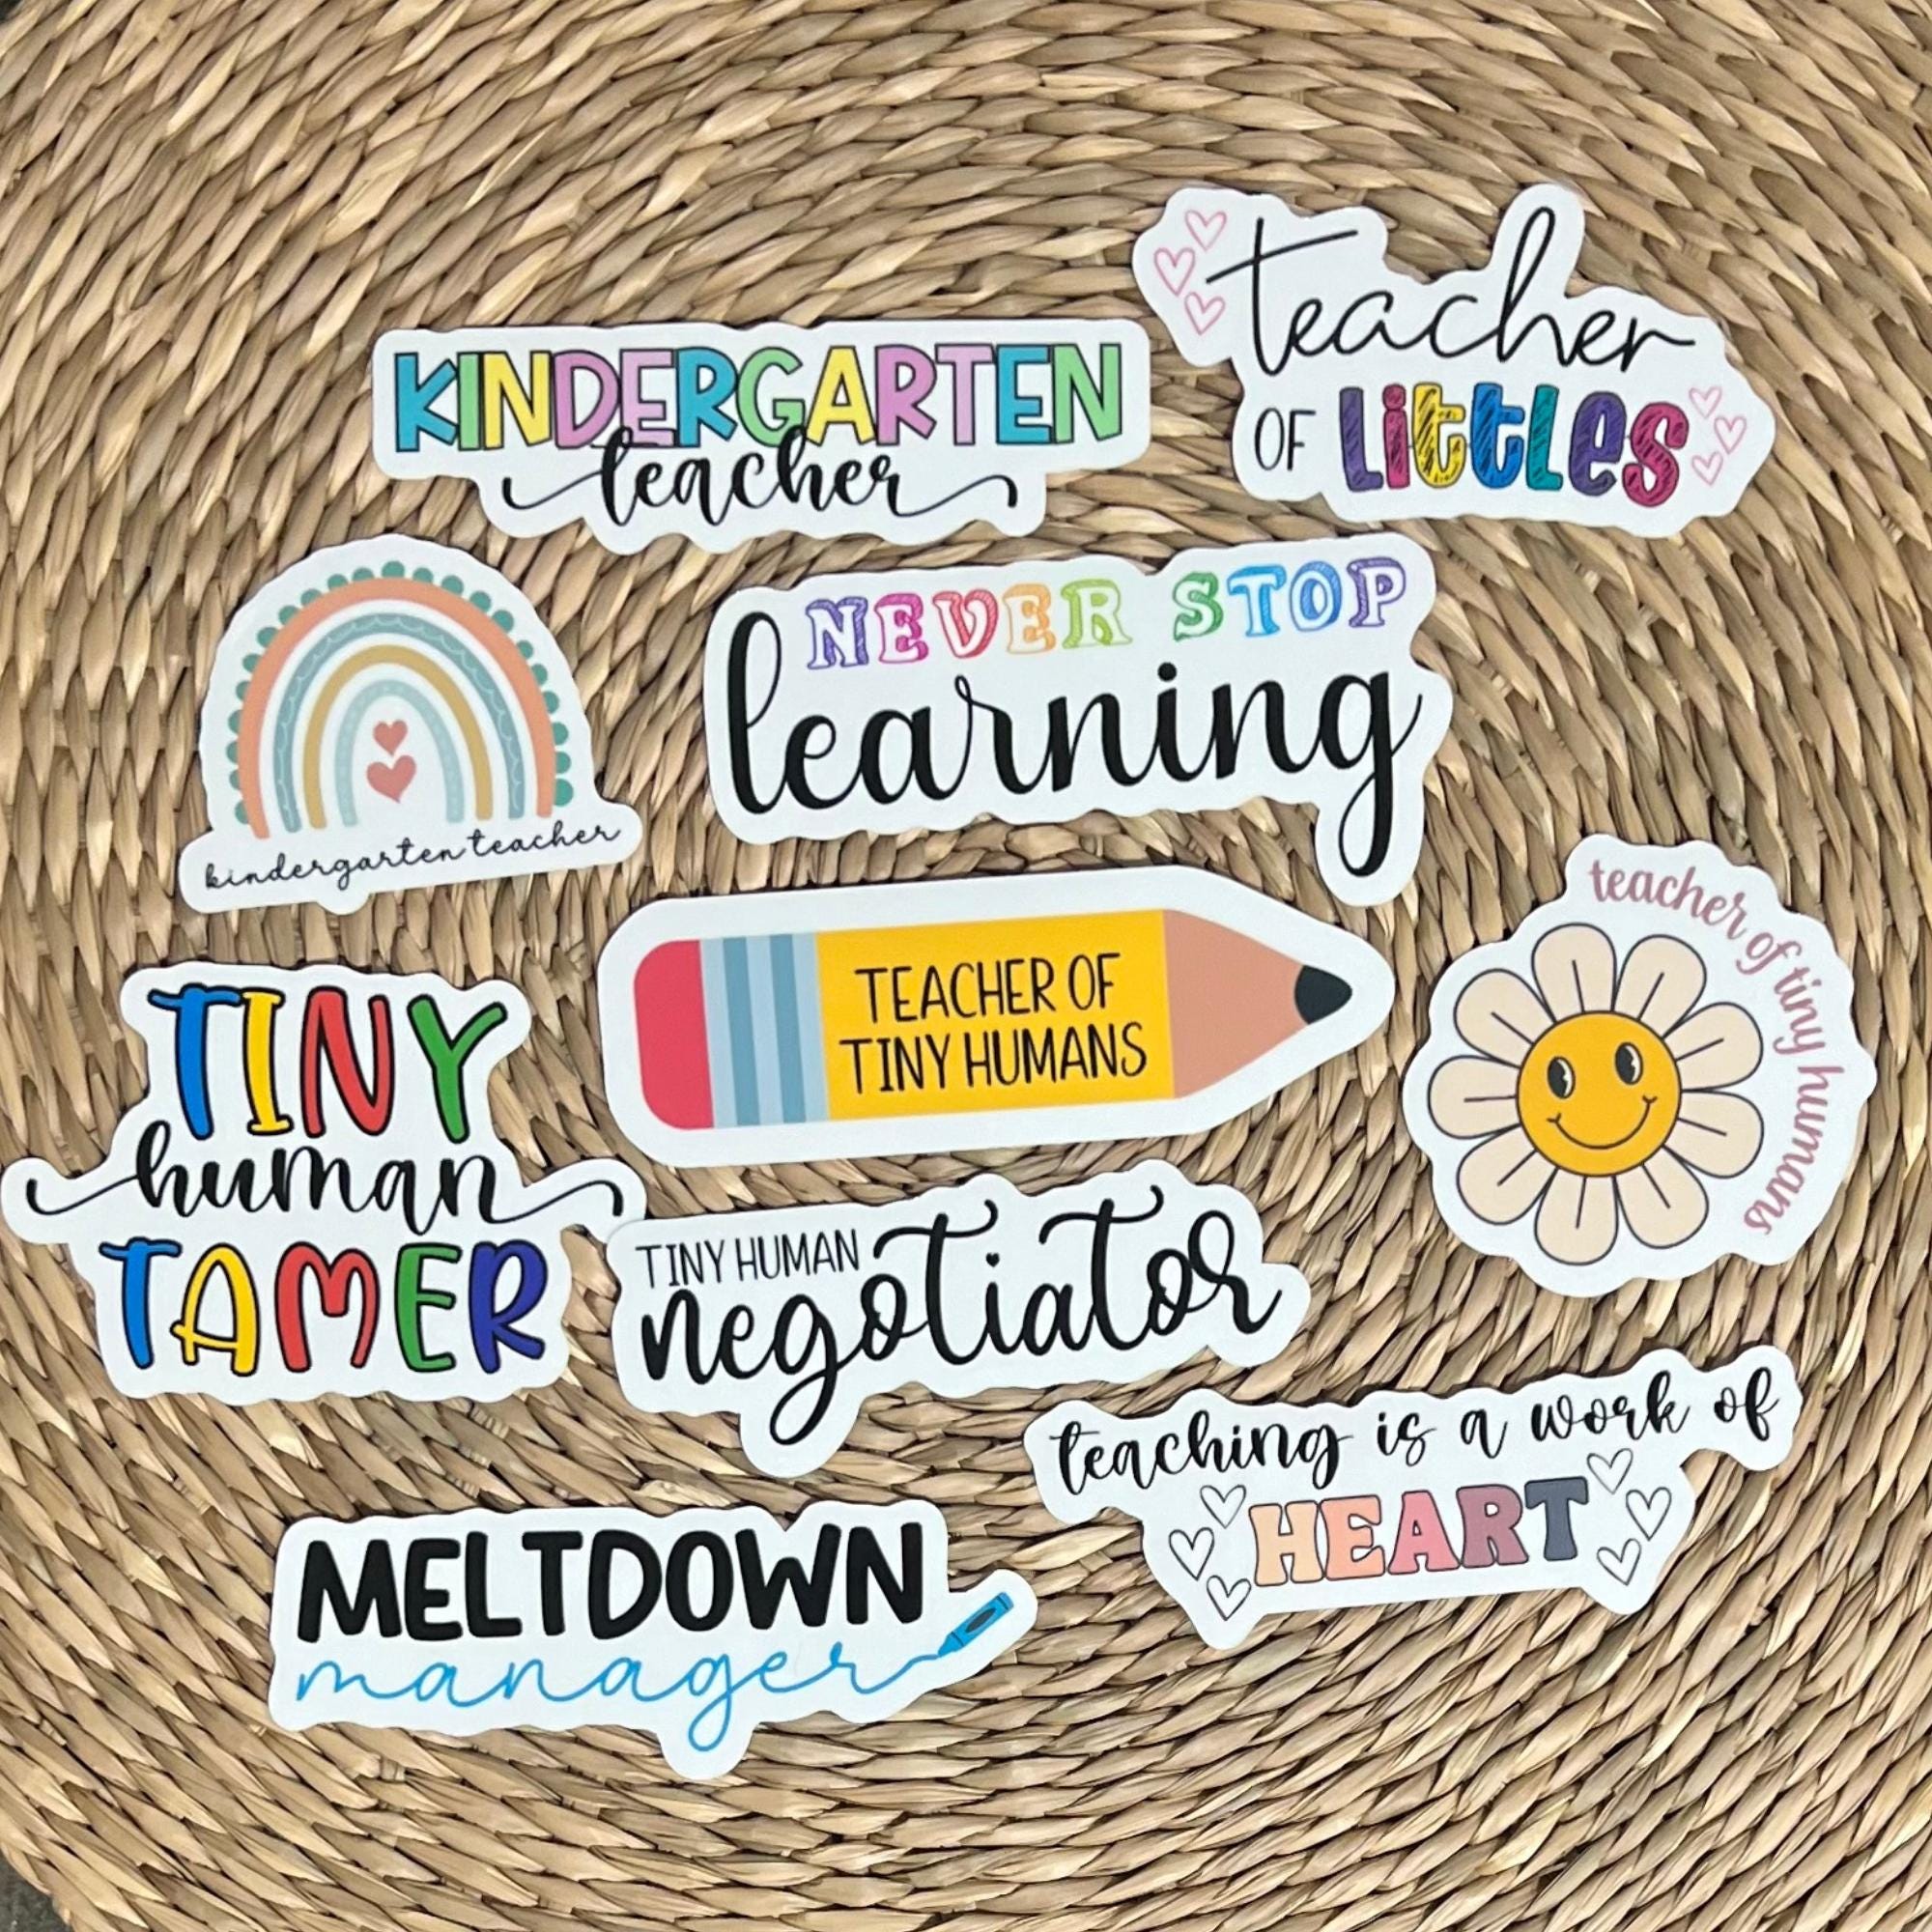 KINDERGARTEN
teacher
teacher
OF Littles
kindergarten teacher
NEVER STOP
learning
TEACHER OF
TINY HUMANS
teacher of tiny humans
TINY
human
TAMER
TINY HUMAN
negotiator
teaching is a work of
HEART
MELTDOWN
manager